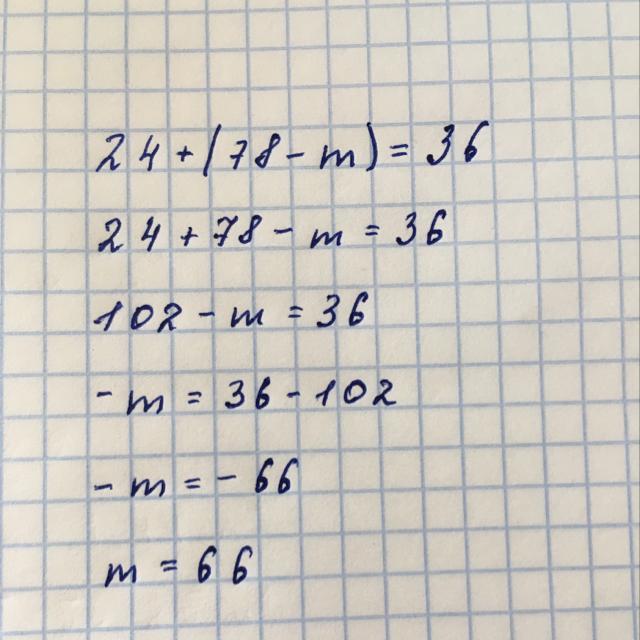 24 + (78 - m) = 36
24 + 78 - m = 36
102 - m = 36
- m = 36 - 102
- m = - 66
m = 66